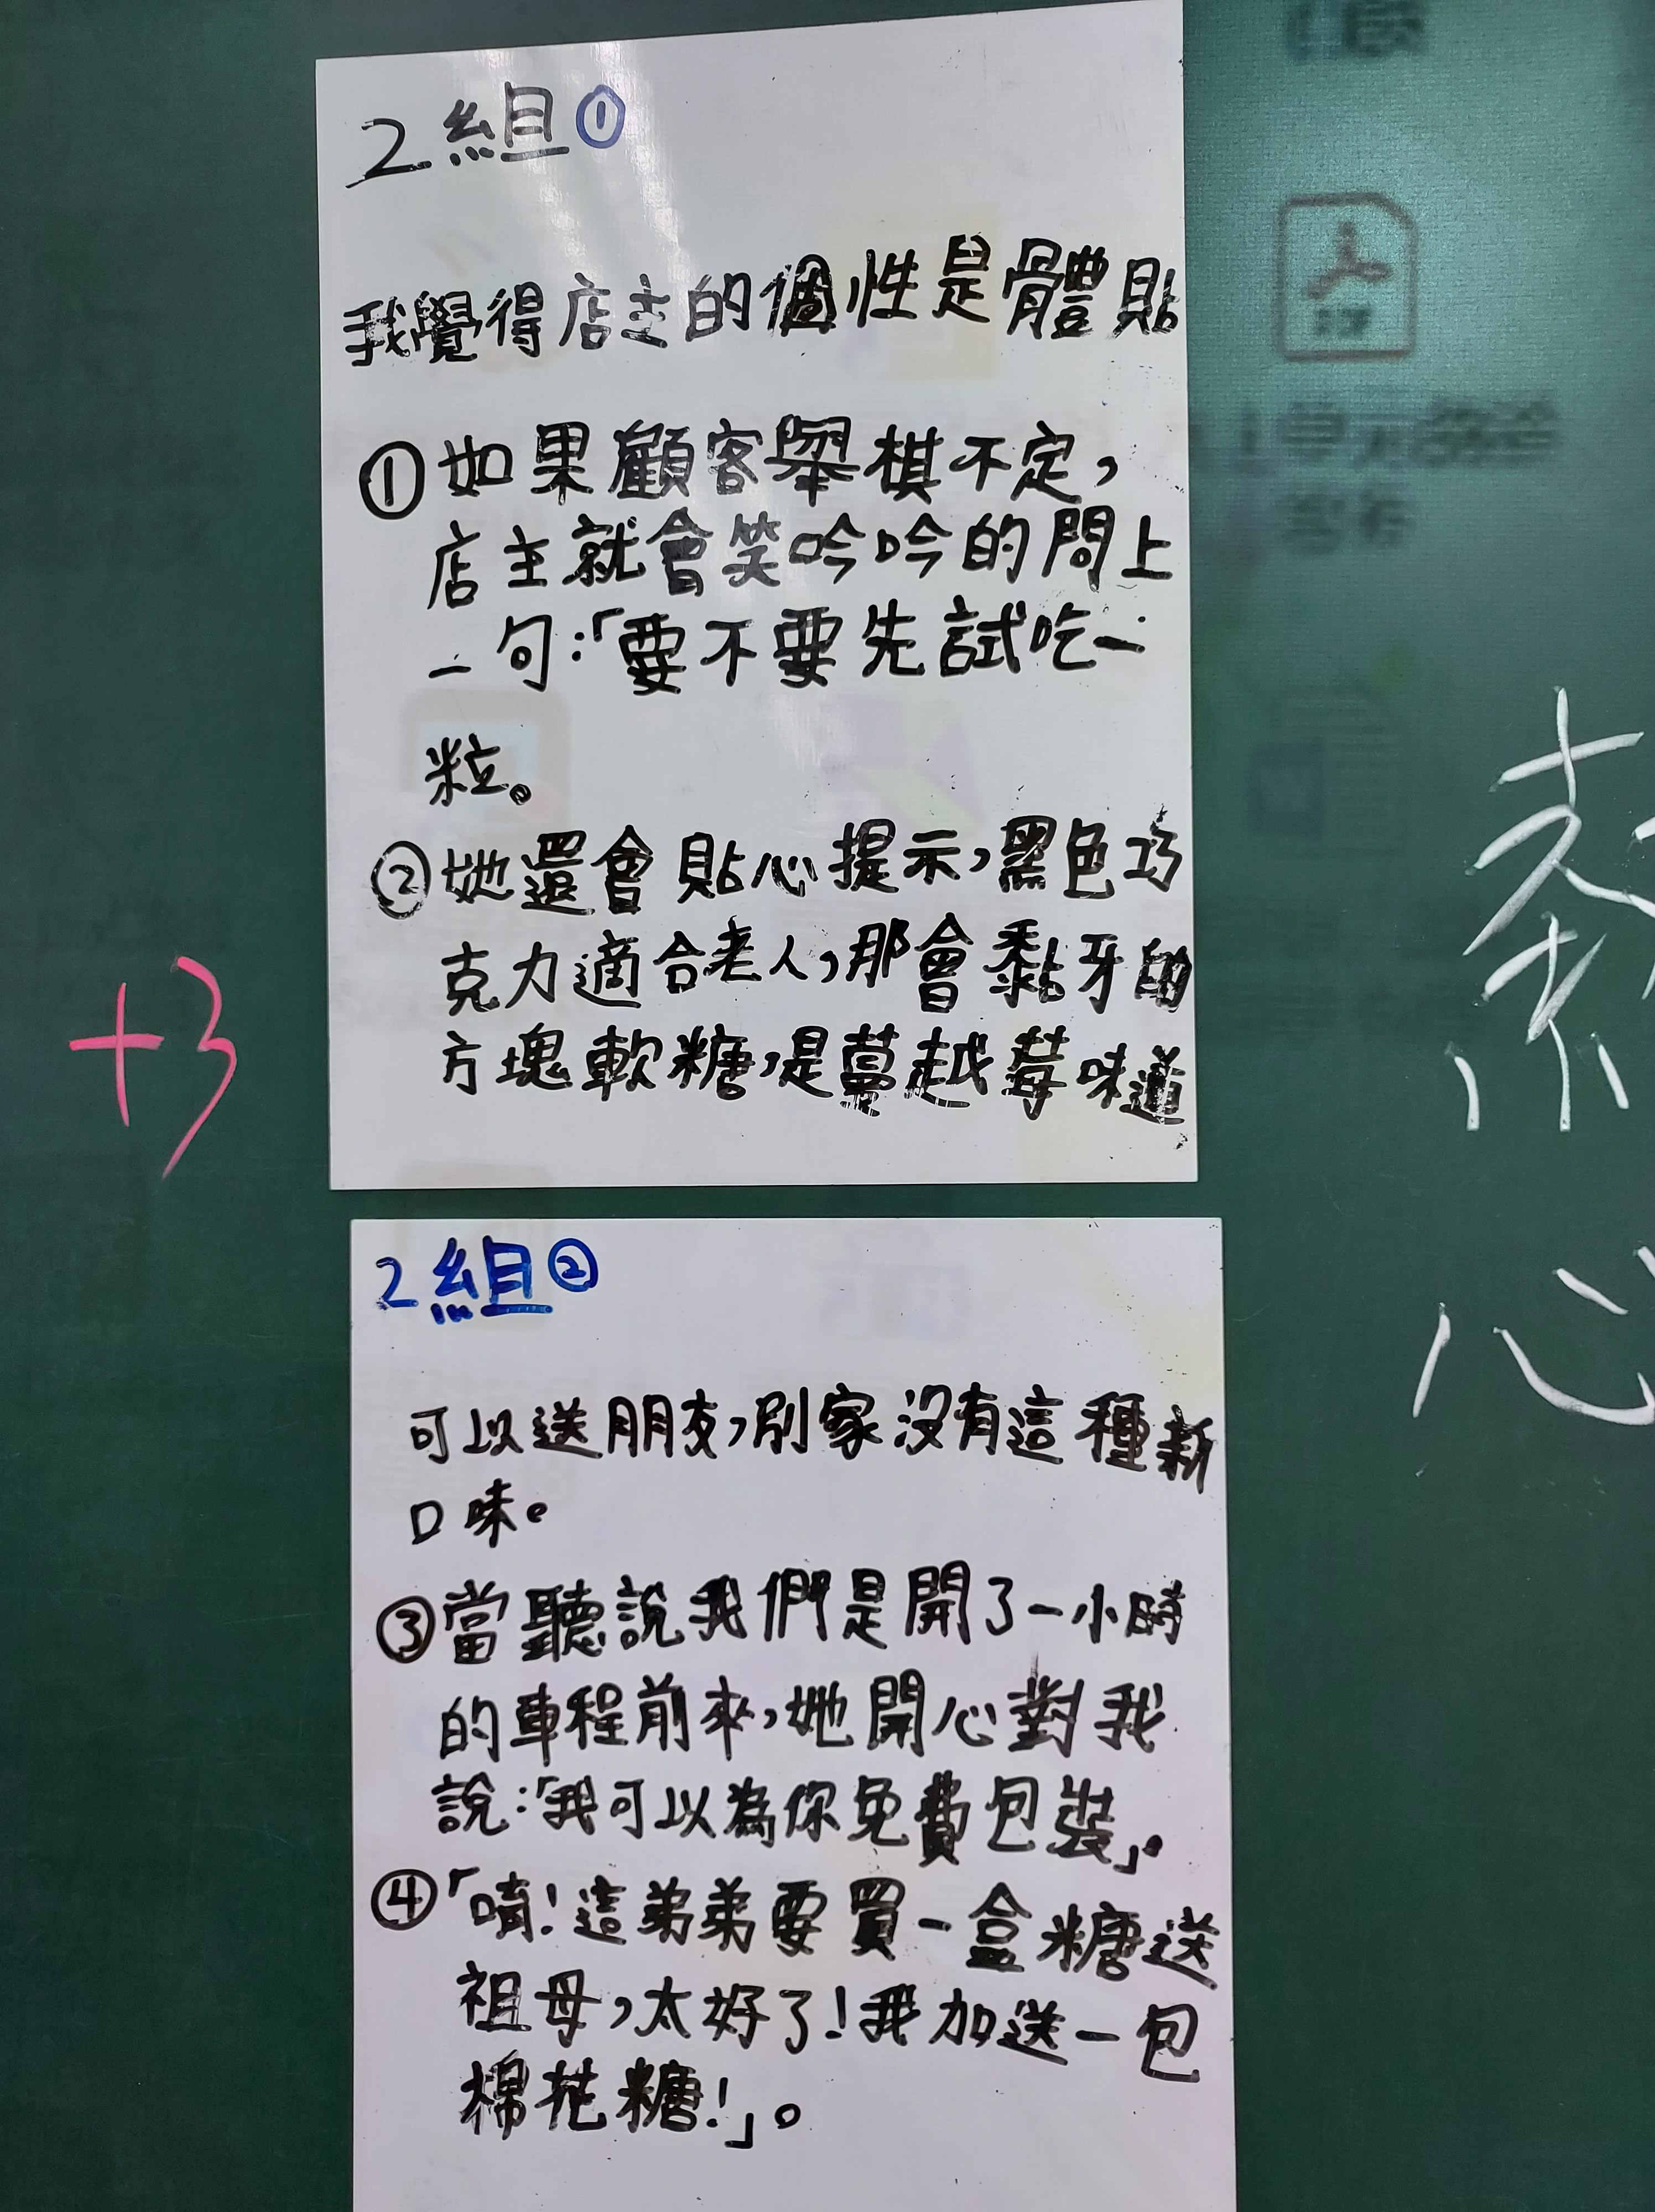 2組①
我覺得店主的個性是體貼
①如果顧客舉棋不定,
店主就會笑吟吟的問上
一句:「要不要先試吃一
粒。
②她還會貼心提示,黑色巧
克力適合老人,那會黏牙的
方塊軟糖,是蔓越莓味道
+3
2組②
可以送朋友,別家沒有這種新
口味。
③當聽說我們是開了一小時
的車程前來,她開心對我
說:「我可以為你免費包裝」。
④「唷!這弟弟要買一盒糖送
祖母,太好了!我加送一包
棉花糖!」。
心